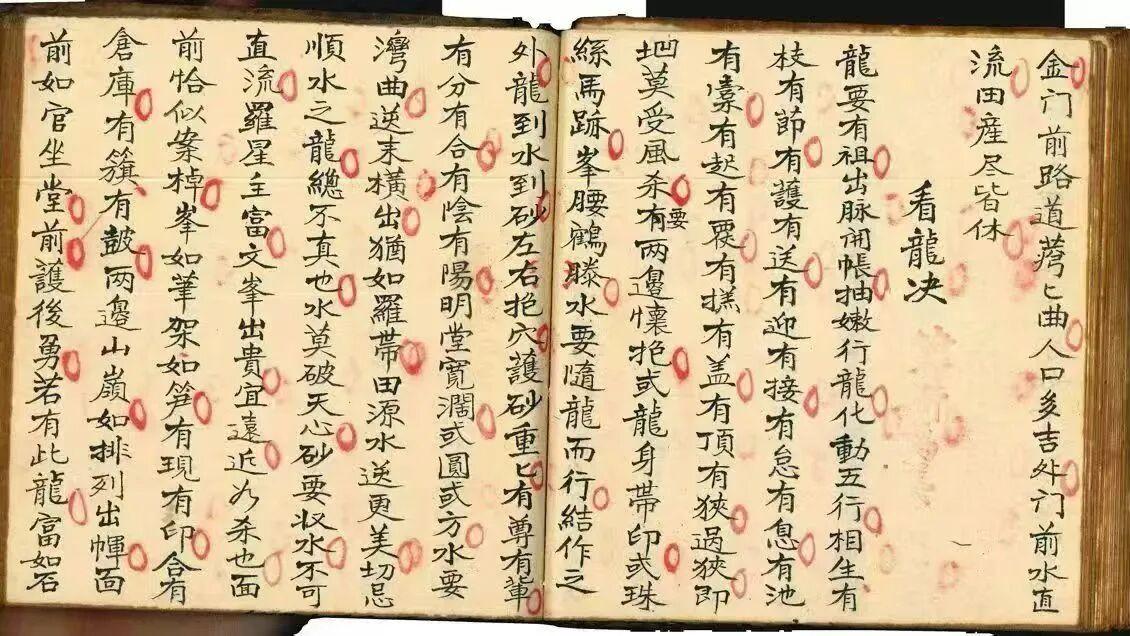 金门前路道莠匕曲人口多吉外门前水直
流田産尽皆休
看龍决
龍要有祖出脉開帳抽嫩行龍化動五行相生有
枝有節有護有送有迎有接有怠有息有池
有橐有起有覆有擡有盖有頂有狹過狹即
堌莫受風杀要有两邉懐抱或龍身帶印或珠
絲馬跡峯腰鶴滕水要隨龍而行結作之
外龍到水到砂左右抱穴護砂重匕有尊有輩
有分有合有陰有陽明堂寛濶或圓或方水要
灣曲送末橫出猶如羅帶田源水送更美切忌
順水之龍總不真也水莫破天心砂要収水不可
直流羅星主富文峯出貴宜遠近為杀也面
前恰似案棹峯如筆架如笋有現有印含有
倉庫有旗有鼓两邉山嶺如排列出帽面
前如官坐堂前護後勇若有此龍富如石